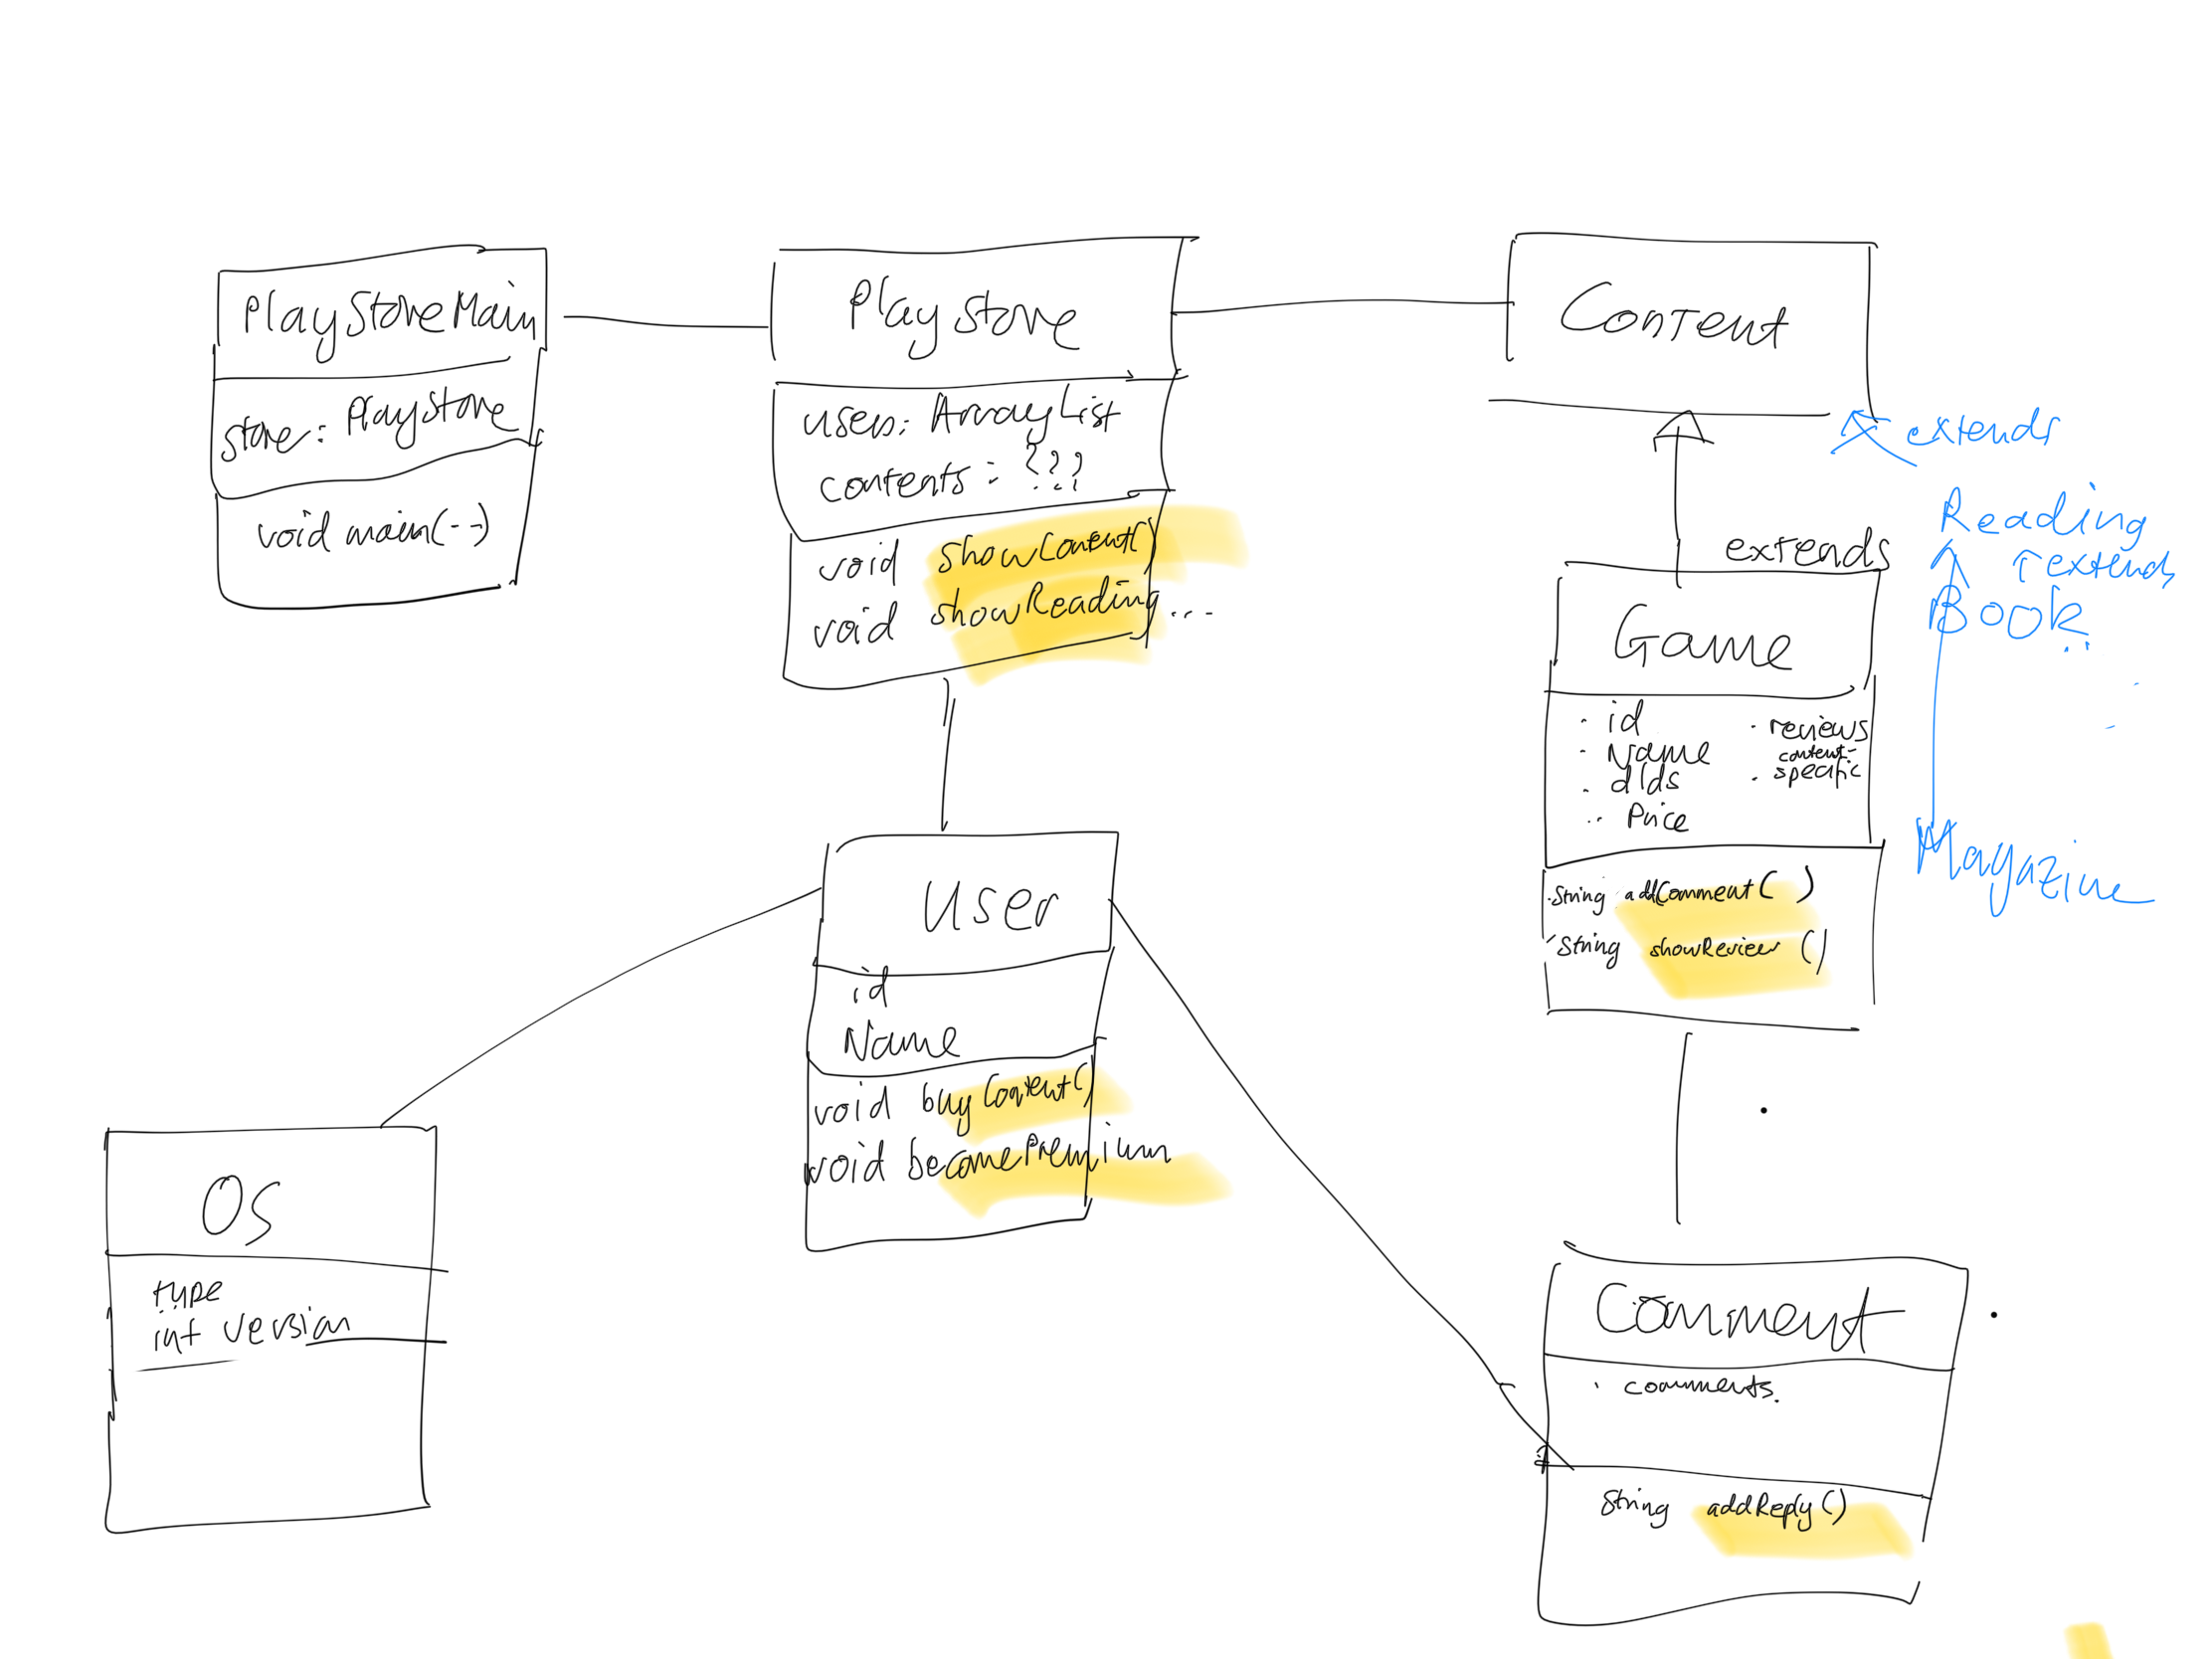 PlayStoreMain
store: PlayStore
void main(--)
Play Store
users: ArrayList
contents: ???
void showContent()
void showReading...
Content
extends
Reading
extends
Book
Magazine
extends
Game
· id
· Name
· dlds
·· Price
· reviews
content-
· specific
·String addComment( )
String showReview ()
User
id
Name
void buyContent()
void becomePremium
OS
type
int version
Comment
· comments.
String addReply()